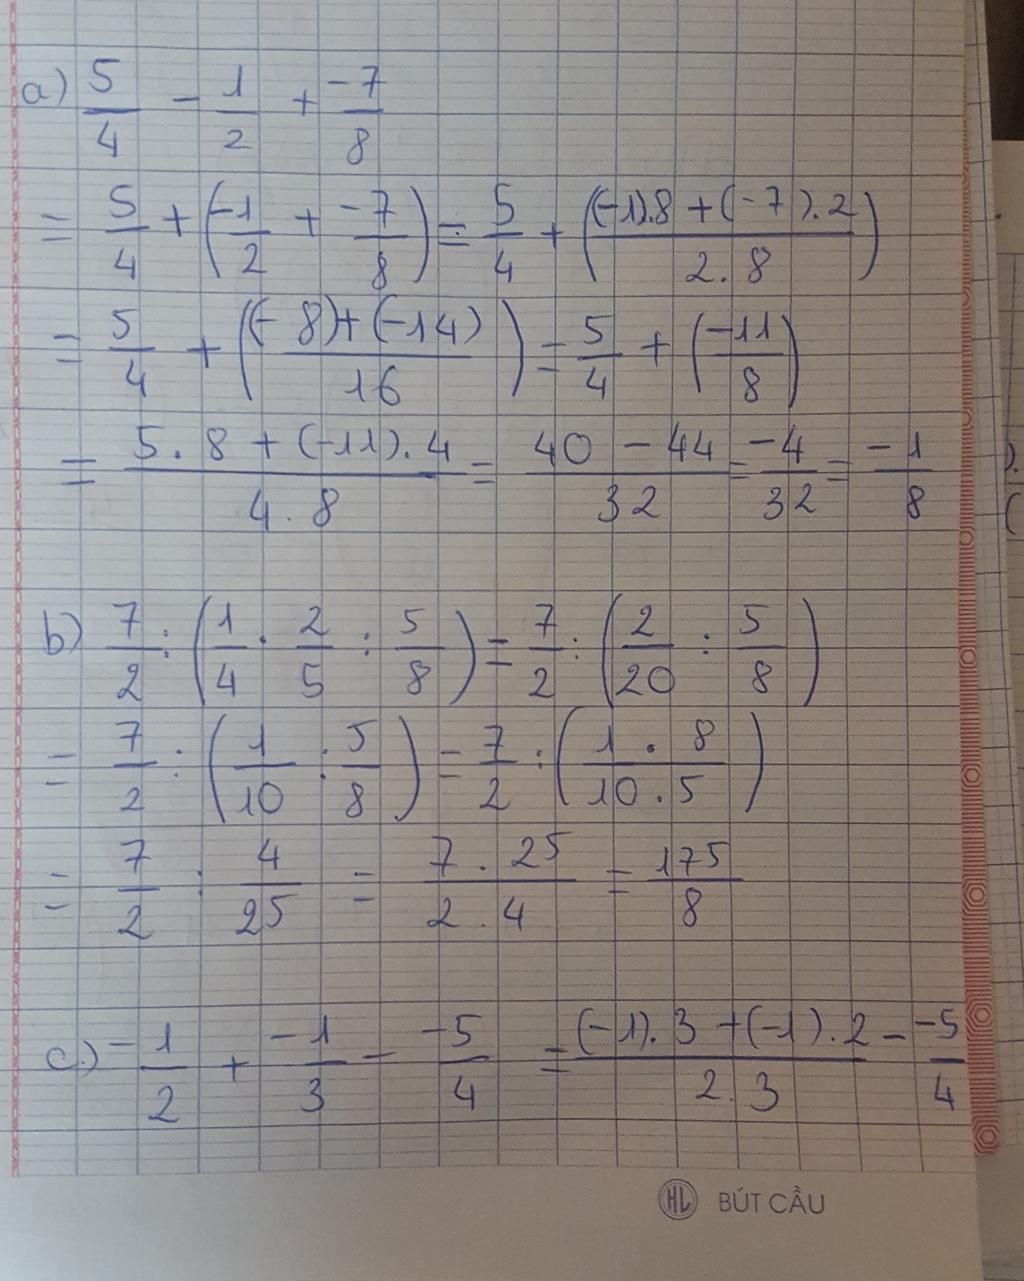 a) 5/4 - 1/2 + -7/8
= 5/4 + (-1/2 + -7/8) = 5/4 + ((-1).8 + (-7).2 / 2.8)
= 5/4 + ((-8)+(-14) / 16) = 5/4 + (-11/8)
= 5.8 + (-11).4 / 4.8 = 40 - 44 / 32 = -4/32 = -1/8
b) 7/2 : (1/4 . 2/5 : 5/8) = 7/2 : (2/20 : 5/8)
= 7/2 : (1/10 : 5/8) = 7/2 : (1.8 / 10.5)
= 7/2 : 4/25 = 7.25 / 2.4 = 175/8
c.) -1/2 + -1/3 - -5/4 = (-1).3 + (-1).2 / 2.3 - -5/4
HL BÚT CẦU